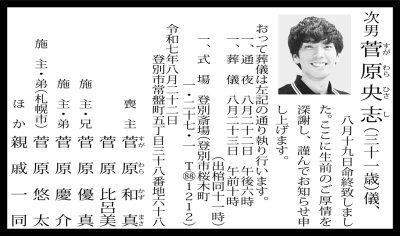 次男 菅原央志(三十一歳)儀、
すが わら ひさ し
八月十九日命終致しまし
た。ここに生前のご厚情を
深謝し、謹んでお知らせ申
し上げます。
おって葬儀は左記の通り執り行います。
一、通夜 八月二十二日 午後六時
一、葬儀 八月二十三日 午前十時
(出棺同十一時)
一、式場 登別斎場(登別市桜木町
一・二十七・一 T㊇1212)
令和七年八月二十二日
登別市常盤町五丁目三十八番地六十八
喪主 菅原和真
すが わら かず まさ
菅原比呂美
施主・兄 菅原優真
施主・弟 菅原慶介
施主・弟(札幌市) 菅原悠太
ほか親戚一同